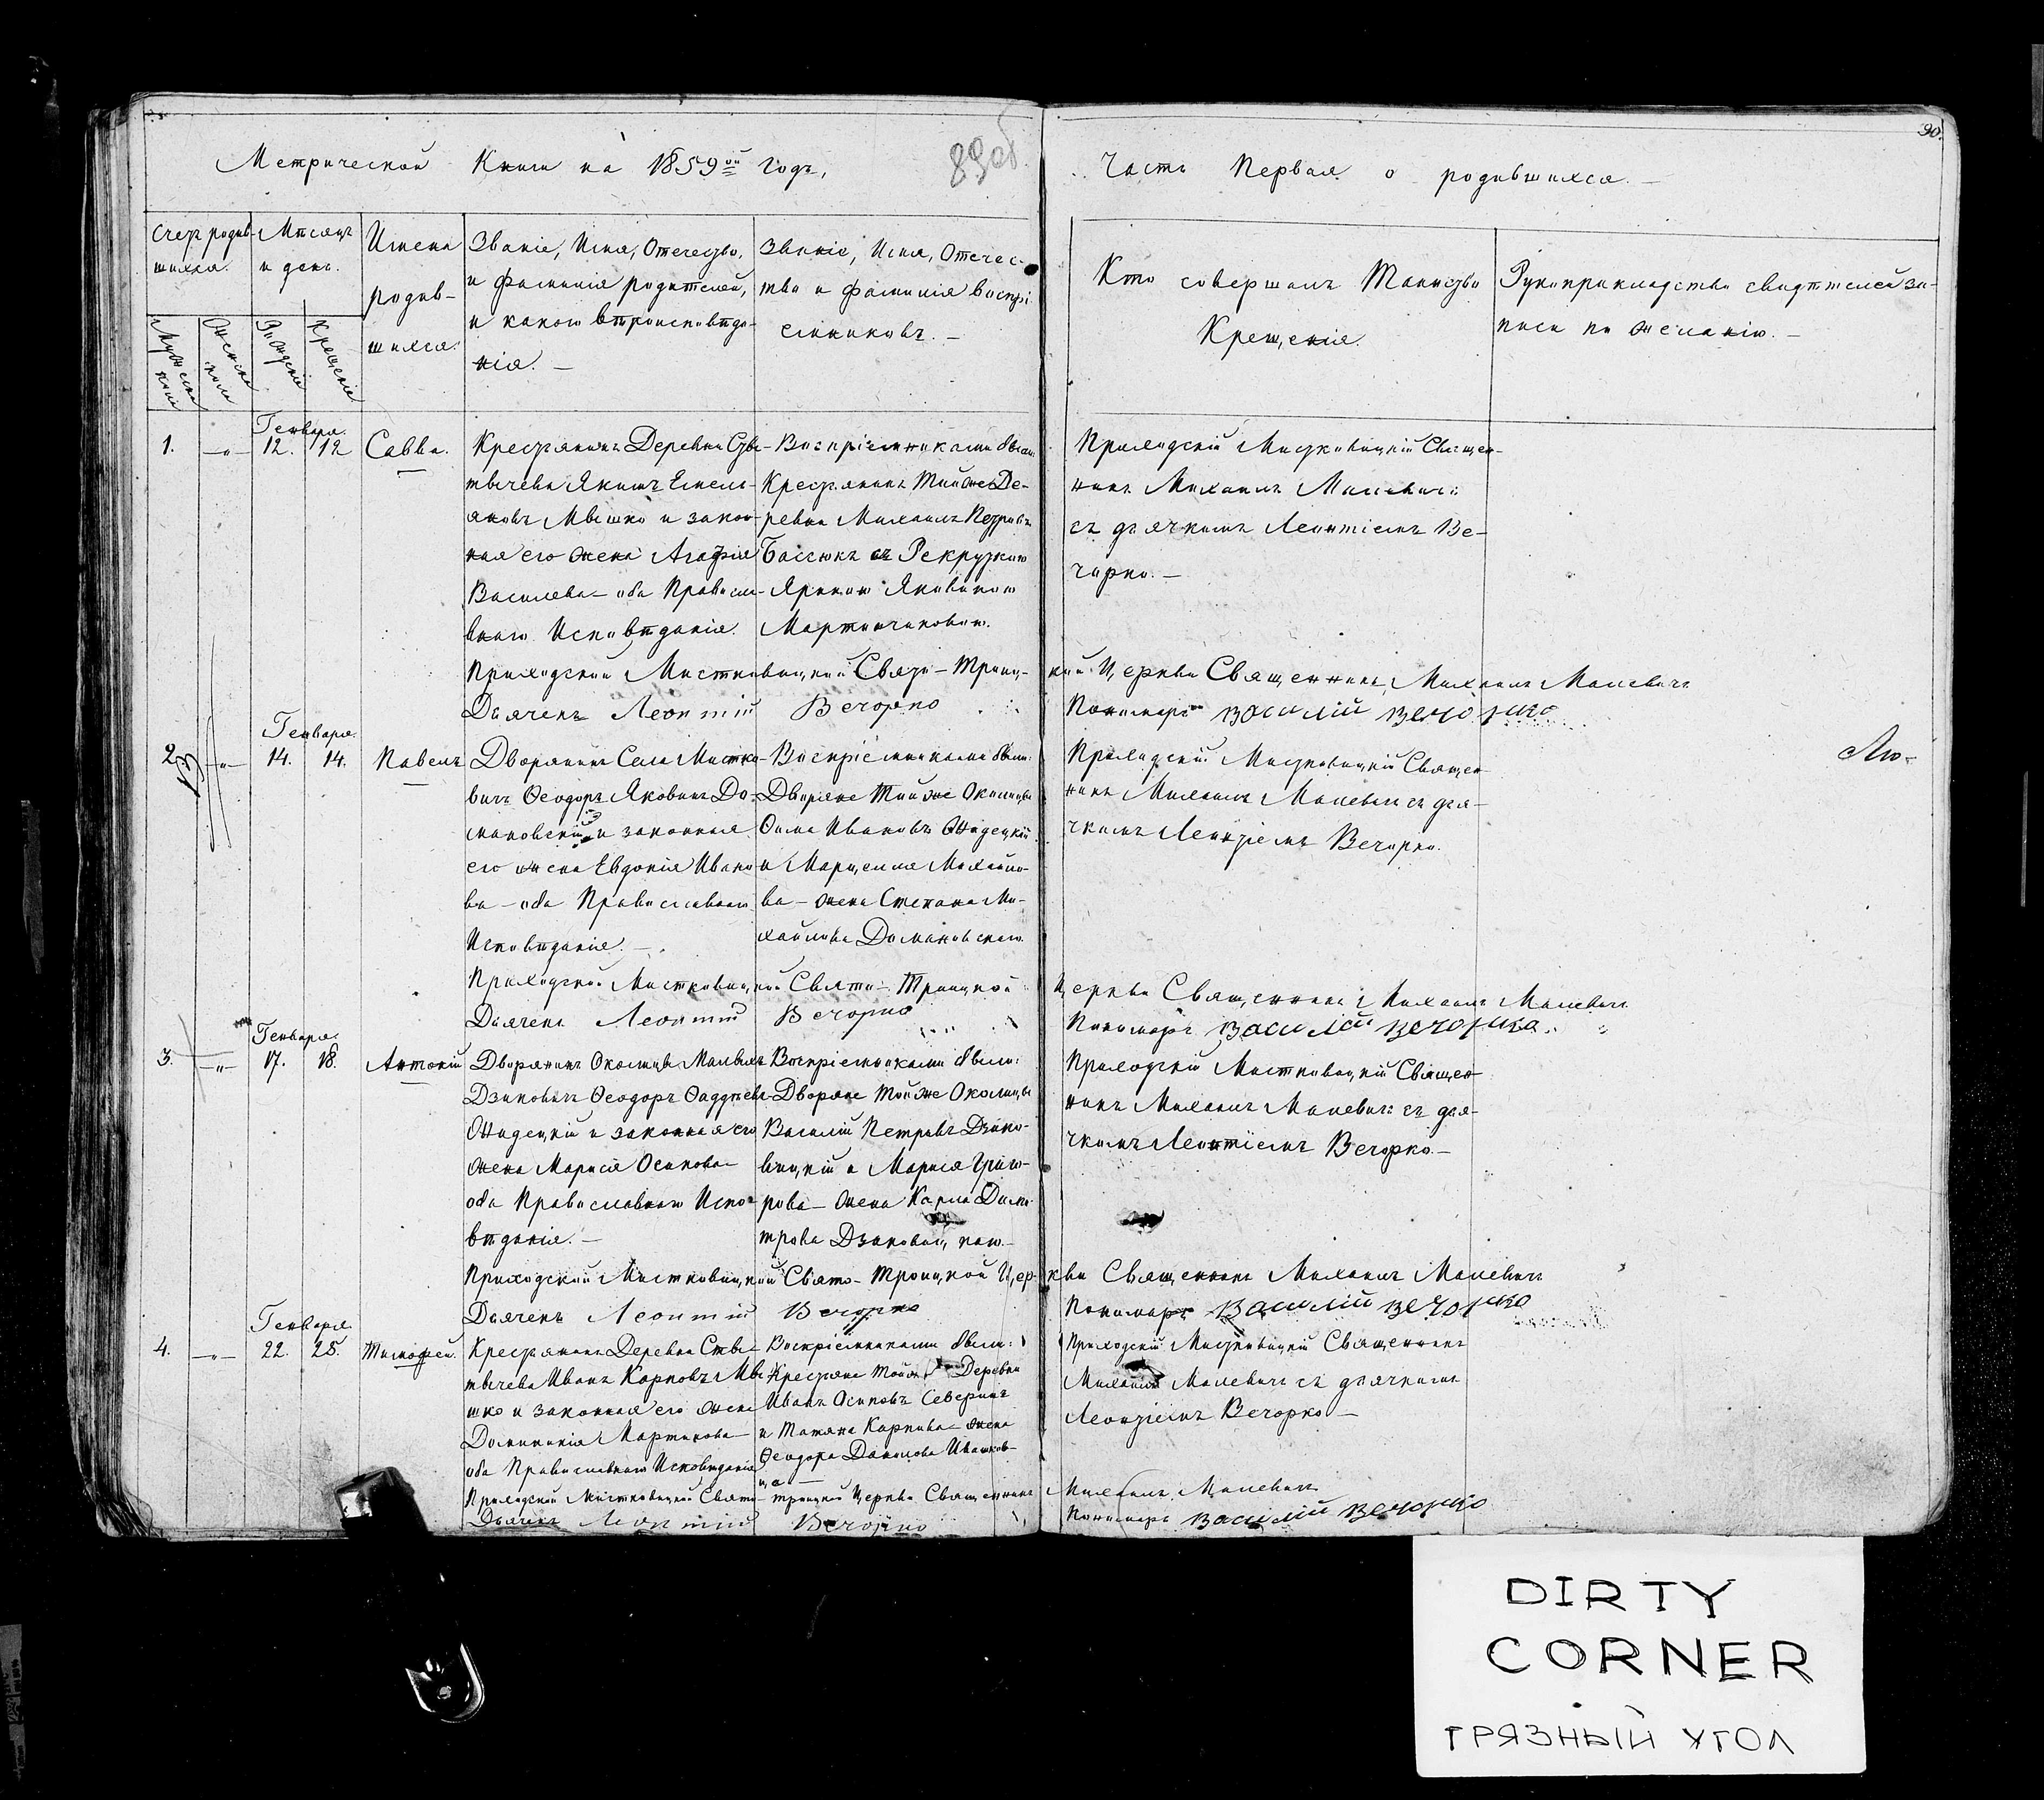 Метрической Книги на 1859ой годъ,
89об.
Часть Первая о родившихся. —
90.
Счетъ родив-
шихся.
Мѣсяцъ
и день.
Имена
родив-
шихся.
Званіе, Имя, Отечество,
и Фамилія родителей,
и какого вѣроисповѣда-
нія. —
Званіе, Имя, Отечес-
тво и Фамилія Воспрі-
емниковъ. —
Кто совершалъ Таинство
Крещенія.
Рукоприкладство свидѣтелей за-
писи по желанію. —
Мужеска
пола
Женска
пола
Рожденія
Крещенія
Генваря.
1. —„— 12. 12 Савва.
Крестьянинъ Деревни
Якимъ Емель-
яновъ Мышко и закон-
ная его жена Агафія
Василева — оба Правосла-
внаго Исповѣданія.
Воспріемниками были:
Крестьянинъ Той же Де-
ревни Михаилъ Петровъ
съ Рекруткою
Яковлевою
Приходскій Мистковицкій Священ-
никъ Михаилъ Малевичъ
съ дьячкомъ Леонтіемъ Ве-
чорко. —
Приходской Мистковицкой Свято-Троиц-
кой Церкви Священникъ Михаилъ Малевичъ
Дьячекъ Леонтій Вечорко
Пономарь Василій Вечорко
Генваря.
2. —„— 14. 14. Павелъ
Дворянинъ Села Мистко-
вичъ Ѳеодоръ Яковлевъ До-
мановскій и законная
его жена Евдокія Ивано-
ва — оба Православнаго
Исповѣданія. —
Воспріемниками были:
Дворяне Той же Околицы
Ѳома Ивановъ Жидецкій
и Марцелла Михайло-
ва — жена Степана Ми-
хайлова Домановскаго.
Приходскій Мистковицкій Священ-
никъ Михаилъ Малевичъ съ дья-
чкомъ Леонтіемъ Вечорко.
Лю-
Приходской Мистковицкой Свято-Троицкой
Церкви Священникъ Михаилъ Малевичъ
Дьячекъ Леонтій Вечорко
Пономарь Василій Вечорко.
Генваря.
3. —„— 17. 18. Антоній
Дворянинъ Околицы Малыхъ
Дзиковичъ Ѳеодоръ Ѳаддѣевъ
Жидецкій и законная его
жена Марися Осипова —
оба Православнаго Испо-
вѣданія. —
Воспріемниками были:
Дворяне Той же Околицы
Василій Петровъ Дзико-
вицкій и Марися Григо-
рова — жена Карла Дими-
трова Дзиковицкаго. —
Приходскій Мистковицкій Священ-
никъ Михаилъ Малевичъ съ дья-
чкомъ Леонтіемъ Вечорко. —
Приходской Мистковицкой Свято-Троицкой Цер-
кви Священникъ Михаилъ Малевичъ
Дьячекъ Леонтій Вечорко
Пономарь Василій Вечорко
Генваря
4. —„— 22. 25. Тимофей.
Крестьянинъ Деревни
Иванъ Карповъ Мы-
шко и законная его жена
Доминикія Мартинова —
оба Православнаго Исповѣданія
Воспріемниками были:
Крестьяне Той же Деревни
Иванъ Осиповъ Северинъ
и Татяна Карпова — жена
Ѳеодора Данилова
Приходскій Мистковицкій Священникъ
Михаилъ Малевичъ съ дьячкомъ
Леонтіемъ Вечорко —
Приходской Мистковицкой Свято-Троицкой Церкви Священникъ
Михаилъ Малевичъ
Дьячекъ Леонтій Вечорко
Пономарь Василій Вечорко
DIRTY
CORNER
ГРЯЗНЫЙ УГОЛ